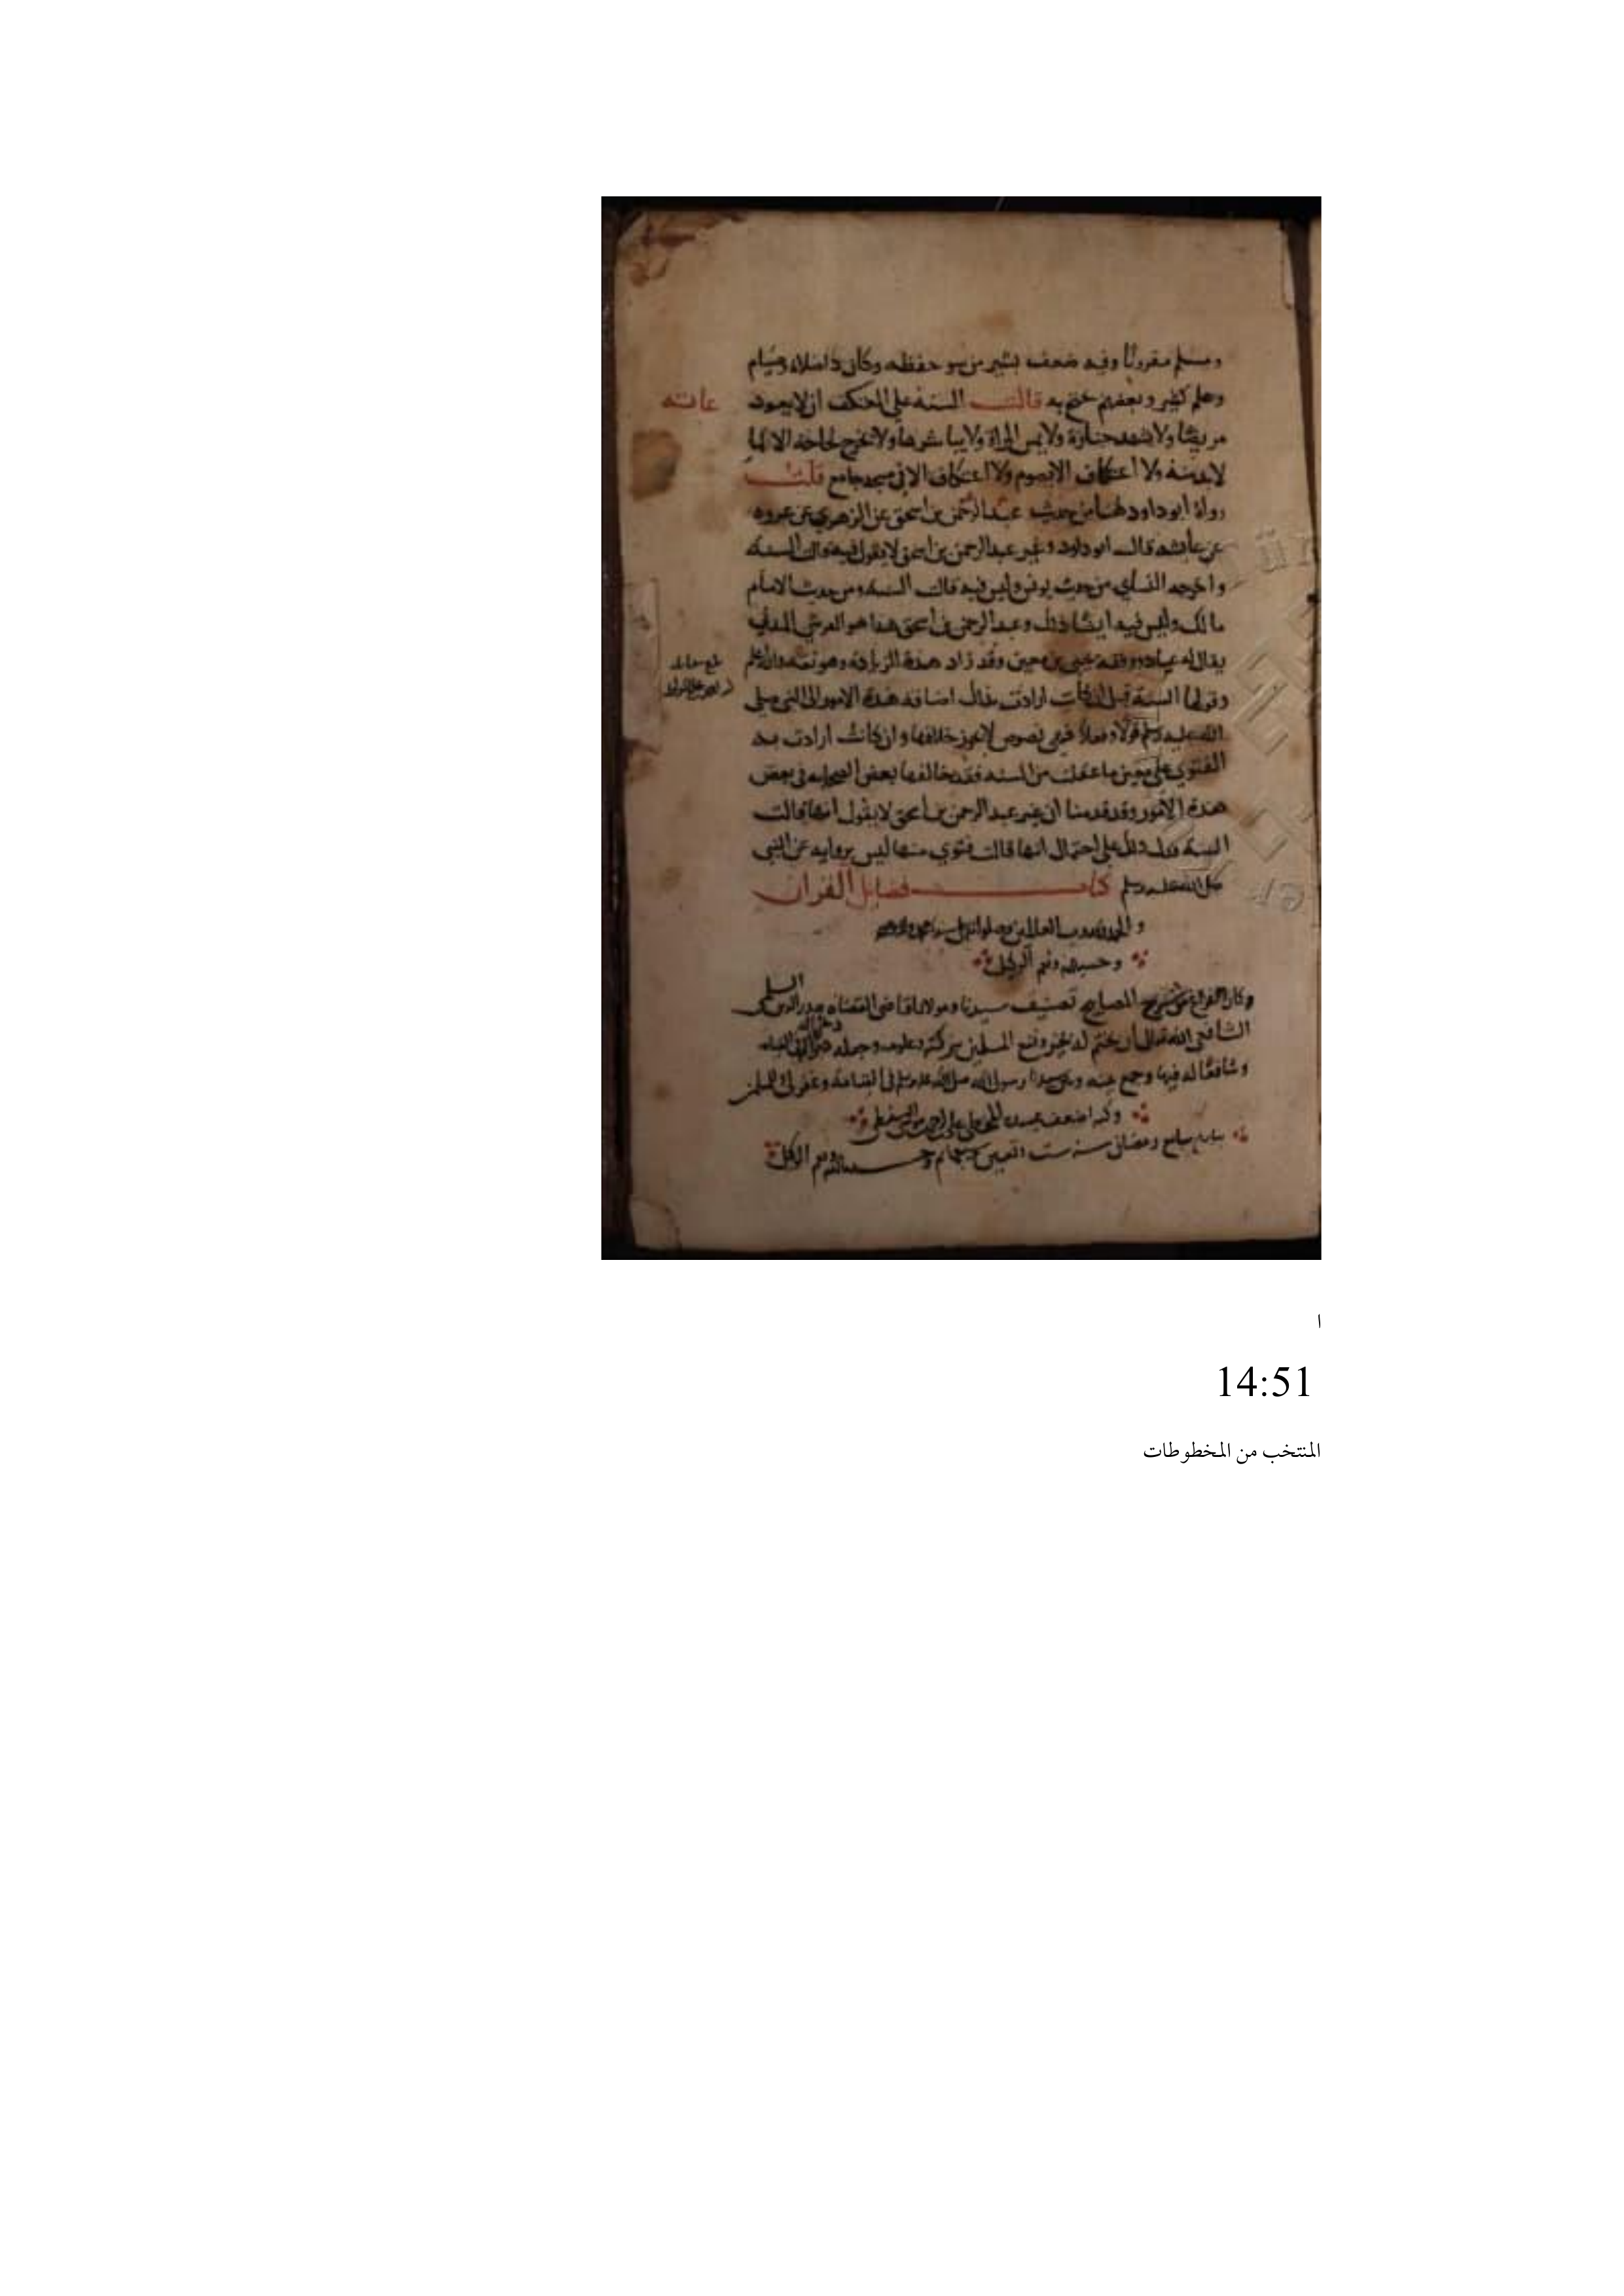 ومسلم مقرونا وفيه ضعف يسير من سو حفظه وكان ذا صلاة وصيام
وعلم كثير وبعضهم يحتج به قالت السنة على المعتكف ان لا يعود
عائشة
مريضا ولا يشهد جنازة ولا يمس المراة ولا يباشرها ولا يخرج لحاجة الا لما
لا بد منه ولا اعتكاف الا بصوم ولا اعتكاف الا في مسجد جامع قلت
رواة ابو داود هنا من حديث عبد الرحمن بن اسحق عن الزهري عن عروه
عن عايشه قال ابو داود وغير عبد الرحمن بن اسحق لا يقول فيه قالت السنة
واخرجه النساي من حديث يونس وليس فيه قالت السنة ومن حديث الامام
مالك وليس فيه ايضا ذلك وعبد الرحمن بن اسحق هذا هو القرشي المدني
يقال له عباد ووثقه يحيى بن معين وقد زاد هذه الزيادة وهو ثقة والله اعلم
بلغ مقابلة
وقولها السنة ان كانت ارادت بذلك اضافة هذه الامور الى النبي صلى
الله عليه وسلم قولا وفعلا فهي نصوص لا يجوز خلافها وان كانت ارادت به
الفتوى على معنى ما عقلت من السنه فقد خالفها بعض الصحابه في بعض
هذه الامور وقد قدمنا ان غير عبد الرحمن بن اسحق لا يقول انها قالت
السنة فدل ذلك على احتمال انها قالت فتوى منها ليس برواية عن النبي
صلى الله عليه وسلم كتاب فضايل القران
والحمد لله رب العالمين وصلواته على سيدنا محمد
وحسبنا الله ونعم الوكيل
وكان الفراغ من شرح المصابيح تصنيف سيدنا ومولانا قاضي القضاه صدر الدين السلمي
الشافعي الله تعالى ان يختم له بخير ونفع المسلمين ببركته وعلومه وجعله
وشافعا له فيها وجمع بينه وبين سيدنا رسول الله صلى الله عليه وسلم في وغفر لكل المسلمين
وكتبه اضعف عبيد الله علي
بتاريخ سابع رمضان سنه ست وحسبنا الله ونعم الوكيل
ا
14:51
المنتخب من المخطوطات